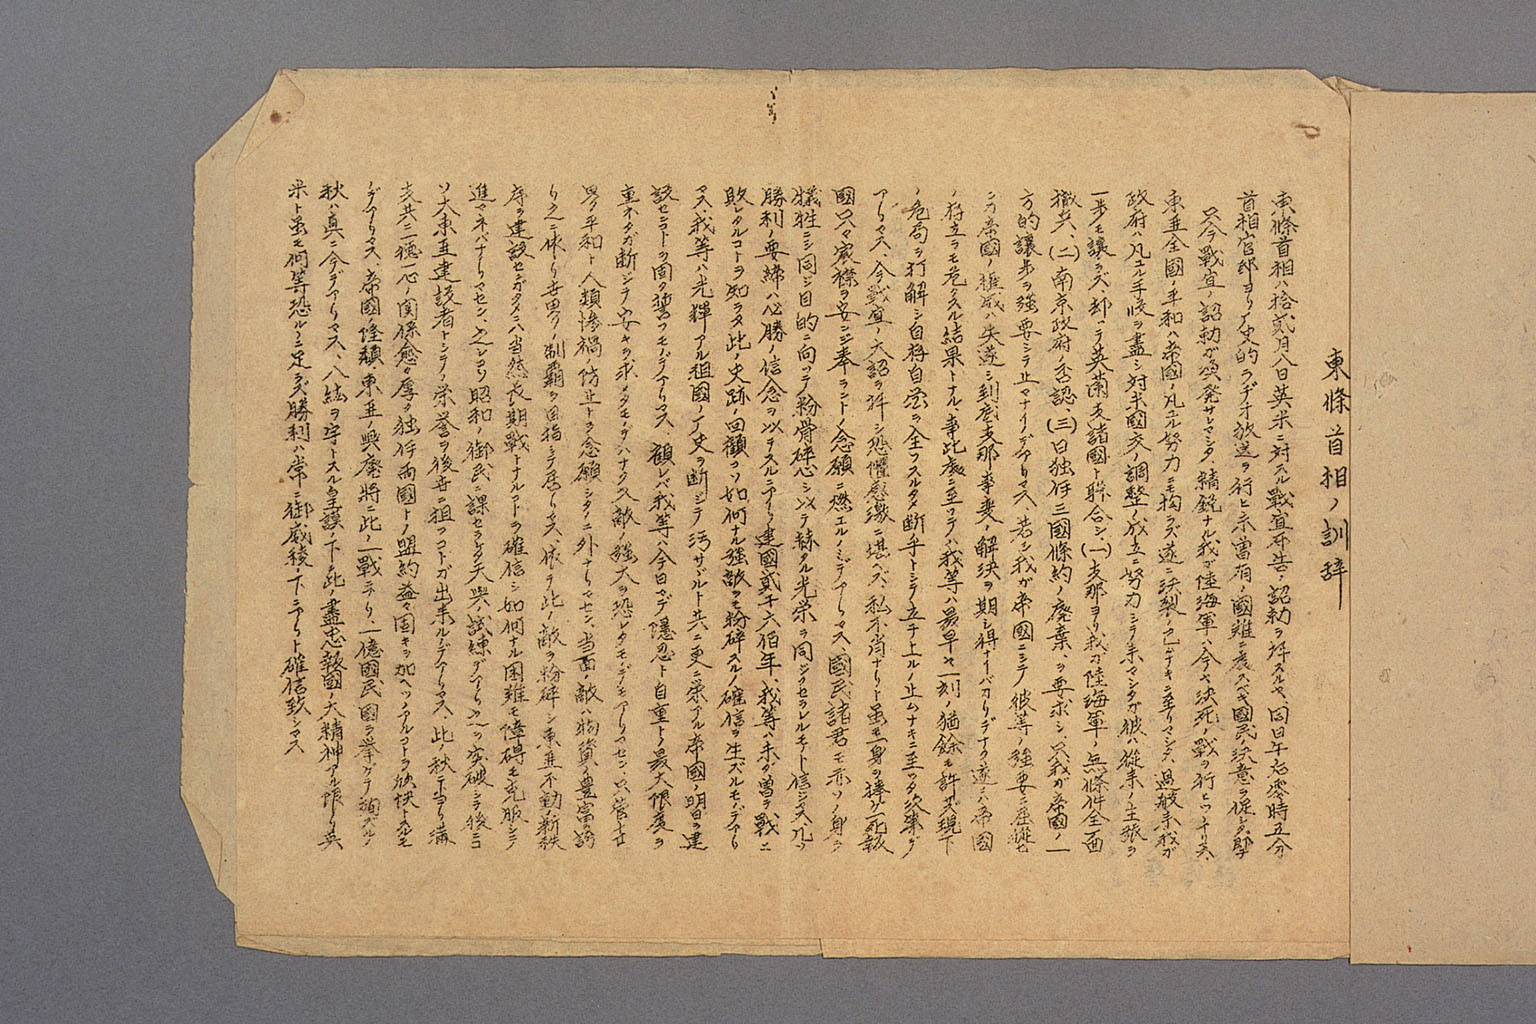 東條首相ノ訓辞
東條首相ハ拾貳月八日英米ニ対スル戰宣布告ノ詔勅ヲ拝スルヤ、同日午后零時五分
首相官邸ヨリ歴史的ラヂオ放送ヲ行ヒ未曽有ノ國難ニ處スベキ國民ノ決意ヲ促シタ、即チ
只今戰宣ノ詔勅ガ渙発サレマシタ、精鋭ナル我ガ陸海軍ハ今ヤ決死ノ戰ヲ行ヒツヽアリマス、
東亜全國ノ平和ハ帝國ノ凡ユル努力ニモ拘ラズ遂ニ決裂ノ已ムナキニ至リマシタ、過般来我ガ
政府ハ凡ユル手段ヲ盡シ対米國交ノ調整ノ成立ニ努力シテ来マシタガ彼ハ従来ノ主張ヲ
一歩モ讓ラズ、却ッテ英蘭支諸國ト聨合シ(一)支那ヨリ我ガ陸海軍ノ無條件全面
撤兵、(二)南京政府ノ否認、(三)日独伊三國條約ノ廃棄、ヲ要求シ、只我ガ帝國ノ一
方的讓歩ヲ強要シテ止マナイノデアリマス、若シ我ガ帝國ニシテ彼等ノ強要ニ屈從セ
ンカ帝國ノ権威ハ失墜シ到底支那事変ノ解決ヲ期シ得ナイバカリデナク遂ニハ帝國
ノ存立ヲモ危クスル結果トナル、事此處ニ至ッテハ我等ハ最早ヤ一刻ノ猶餘モ許サズ現下
ノ危局ヲ打解シ自存自衛ヲ全フスルタメ断乎トシテ立チ上ルノ止ムナキニ至ッタ次第デ
アリマス、今戰宣ノ大詔ヲ拝シ恐懼感激ニ堪ヘズ、私不肖ナリト虽モ一身ヲ捧ゲ死報
國只々宸襟ヲ安ンジ奉ラントノ念願ニ燃エルノミデアリマス、國民諸君モ亦ソノ身ヲ
犠牲ニシ同ジ目的ニ向ッテ粉骨砕心シ以テ赫々タル光栄ヲ同ジクセラレルモノト信ジマス、凡ソ
勝利ノ要締ハ必勝ノ信念ヲ以テスルニアリ、建國貳千六佰年、我等ハ未ダ曽テ戰ニ
敗レタルコトヲ知ラヌ此ノ史跡ノ回顧コソ如何ナル強敵ヲモ粉砕スルノ確信ヲ生ズルモノデアリ
マス、我等ハ光輝アル祖國ノ歴史ヲ断ジテ汚サザルト共ニ更ニ栄アル帝國ノ明日ヲ建
設センコトヲ固ク誓フモノデアリマス、顧レバ我等ハ今日マデ隠忍ト自重トノ最大限度ヲ
重ネタガ断ジテ安キヲ求メタモノデハナク又敵ノ強大ヲ恐レタモノデモアリマセン、只管世
界ノ平和ト人類惨禍ノ防止トヲ念願シタノニ外ナリマセン、当面ノ敵ハ物資ノ豊富ヲ誇
リ之ニ依リ世界ノ制覇ヲ目指シテ居リマス、依テ此ノ敵ヲ粉砕シ東亜不動ノ新秩
序ヲ建設センガタメニハ当然長期戰トナルコトヲ確信シ如何ナル困難モ障碍モ克服シテ
進マネバナリマセン、之レコソ昭和ノ御民ニ課セラレタ天與ノ試練デアリ之ヲ突破シテ後ニコ
ソ大東亜建設者トシテノ栄誉ヲ後世ニ担フコトガ出来ルノデアリマス、此ノ秋ニ当リ満
支共ニ一徳一心ノ関係愈々厚ク独伊両國トノ盟約益々固キヲ加ヘツヽアルコトヲ欣快トスルモ
ノデアリマス、帝國ノ隆頽東亜ノ興廃将ニ此ノ一戰ニアリ、一億國民ガ國ヲ挙ゲテ殉ズルノ
秋ハ真ニ今デアリマス、八紘ヲ宇トスル皇謨ノ下ニ此ノ盡忠報國ノ大精神アル限リ英
米ト虽モ何等恐ルヽニ足ラズ勝利ハ常ニ御戚稜ノ下ニアリト確信致シマス